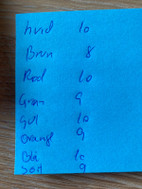 hvid 10
Brun 8
Rød 10
Grøn 9
Gul 10
Orange 9
Blå 10
Sort 9